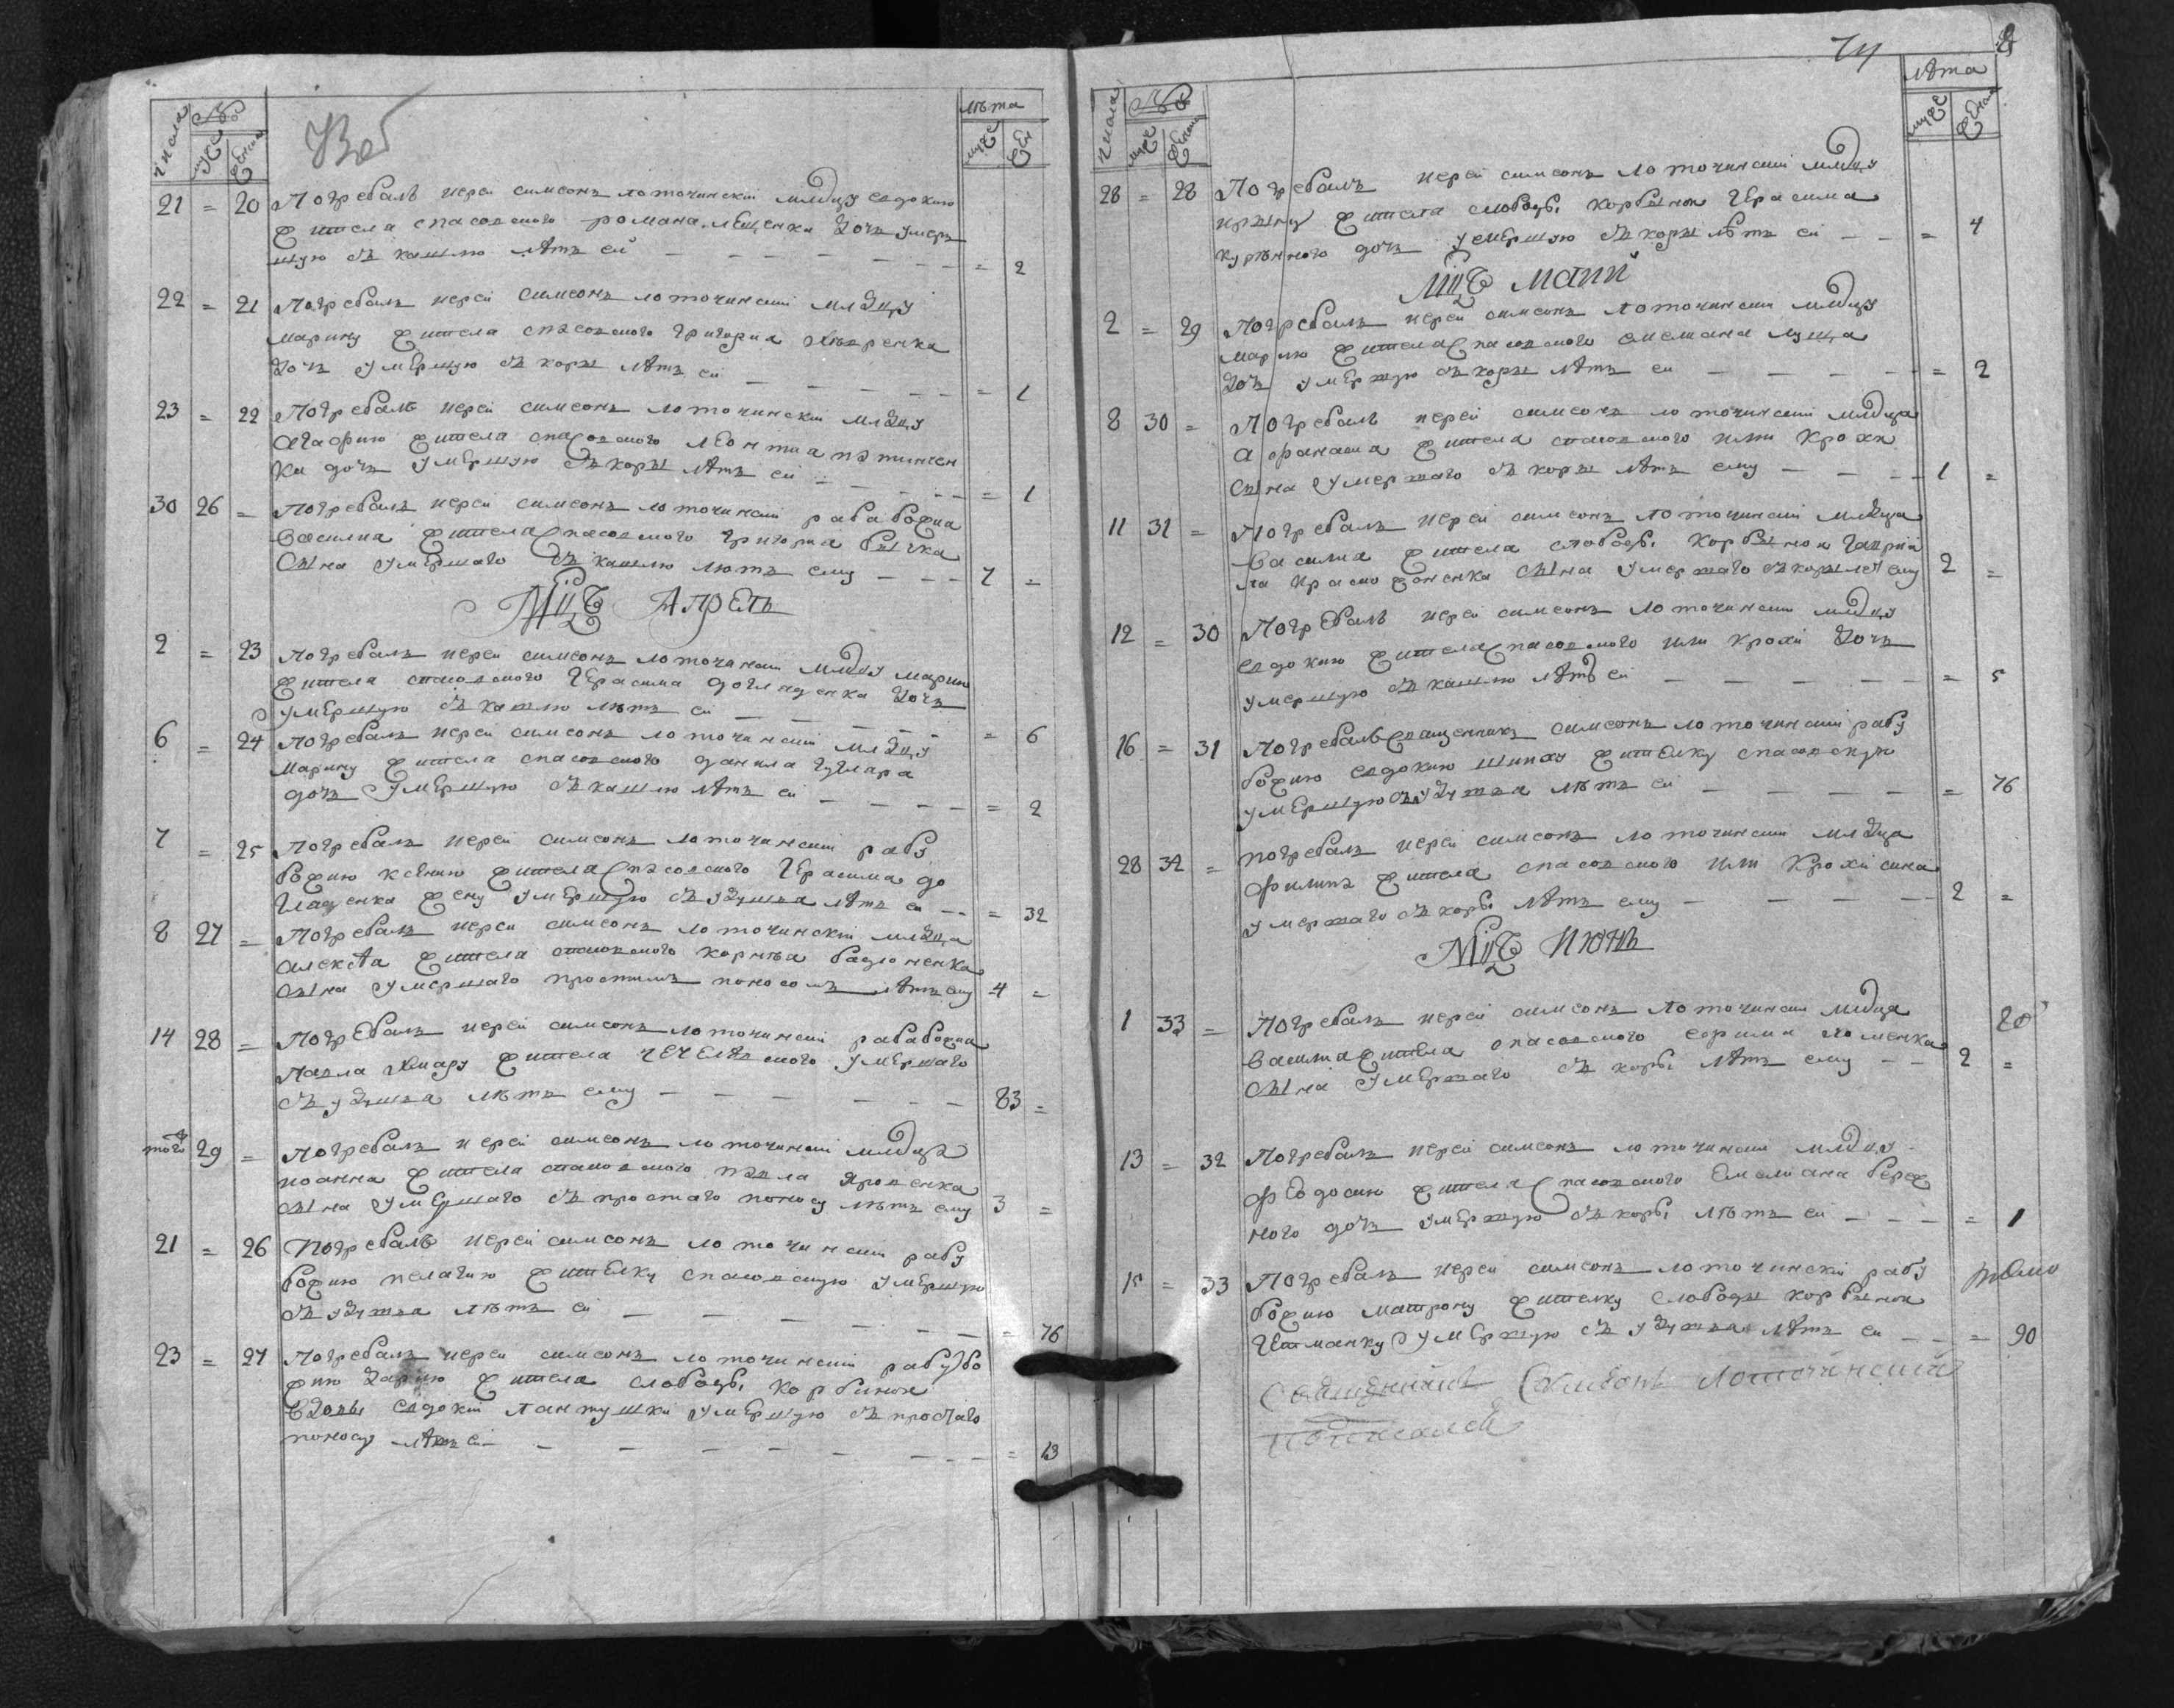 числа № мужс женска лѣта мужс жен
21 = 20 Погребалъ иерей симеонъ лоточинскій млдцу евдокию
жителя спасовского романа лещенка дочъ умер
шую съ кашлю лѣтъ ей — = 2
22 = 21 Погребалъ иерей симеонъ лоточинскій млдцу
марину жителя спасовского григория
дочъ умершую съ коры лѣтъ ей — = 1
23 = 22 Погребалъ иерей симеонъ лоточинскій млдцу
Агафию жителя спасовского леонтиа
ки дочъ умершую съ коры лѣтъ ей — = 1
30 26 = Погребалъ иерей симеонъ лоточинскій раба божиа
василиа жителя спасовского григориа бычка
сына умершаго съ кашлю лѣтъ ему — 7 =
Мцъ Апрель
2 = 23 Погребалъ иерей симеонъ лоточинскій млдцу марию
жителя спасовского Герасима догляденка дочъ
умершую съ кашлю лѣтъ ей — = 6
6 = 24 Погребалъ иерей симеонъ лоточинскій млдцу
марину жителя спасовского данила
дочъ умершую съ кашлю лѣтъ ей — = 2
7 = 25 Погребалъ иерей симеонъ лоточинскій рабу
божию ксению жителя спасовского Герасима до
гладенка жену умершую съ удушья лѣтъ ей — = 32
8 27 = Погребалъ иерей симеонъ лоточинскій млдца
алексѣа жителя спасовского корнѣа
сына умершаго простимъ поносомъ лѣтъ ему 4 =
14 28 = Погребалъ иерей симеонъ лоточинскій раба божиа
павла жителя умершаго
съ удушья лѣтъ ему — 83 =
того 29 = Погребалъ иерей симеонъ лоточинскій млдца
иоанна жителя спасовского павла яровенка
сына умершаго съ простаго поносу лѣтъ ему 3 =
21 = 26 Погребалъ иерей симеонъ лоточинскій рабу
божию пелагию жителку спасовскую умершую
съ удушья лѣтъ ей — = 76
23 = 27 Погребалъ иерей симеонъ лоточинскій рабу бо
жию дарию жителя слободы корбинои
вдовы евдокіи пантушки умершую съ простаго
поносу лѣтъ ей — = 13
74
числа № мужс женска лѣта мужс женска
28 = 28 Погребалъ иерей симеонъ лоточинскій млдцу
ирыну жителя слободы корбынои Герасима
курѣнного дочъ умершую съ коры лѣтъ ей — = 4
Мцъ Маий
2 = 29 Погребалъ иерей симеонъ лоточинскій млдцу
марию жителя спасовского
дочъ умершую съ коры лѣтъ ей — = 2
8 30 = Погребалъ иерей симеонъ лоточинскій млдца
афанасиа жителя спасовского илии крохи
сына умершаго съ коры лѣтъ ему — 1 =
11 31 = Погребалъ иерей симеонъ лоточинскій млдца
василиа жителя слободы корбынои гаврии
ла сына умершаго съ коры лет ему 2 =
12 = 30 Погребалъ иерей симеонъ лоточинскій млдцу
евдокию жителя спасовского илии крохи дочъ
умершую съ кашлю лѣтъ ей — = 5
16 = 31 Погребалъ священникъ симеонъ лоточинскій рабу
божию евдокию жителку спасовскую
умершую съ удушья лѣтъ ей — = 76
28 32 = Погребалъ иерей симеонъ лоточинскій млдца
филипа жителя спасовского илии крохи сина
умершаго съ коры лѣтъ ему — 2 =
Мцъ Июнь
1 33 = Погребалъ иерей симеонъ лоточинскій млдца
василиа жителя спасовского ефима хоменка
сына умершаго съ коры лѣтъ ему — 2 =
13 = 32 Погребалъ иерей симеонъ лоточинскій млдцу
феодосию жителя спасовского Емелиана береж
ного дочъ умершую съ коры лѣтъ ей — = 1
15 = 33 Погребалъ иерей симеонъ лоточинскій рабу
божию матрону жителку слободы корбынои
гетманку умершую съ удушья лѣтъ ей — = 90
Священникъ Симеонъ Лоточинский